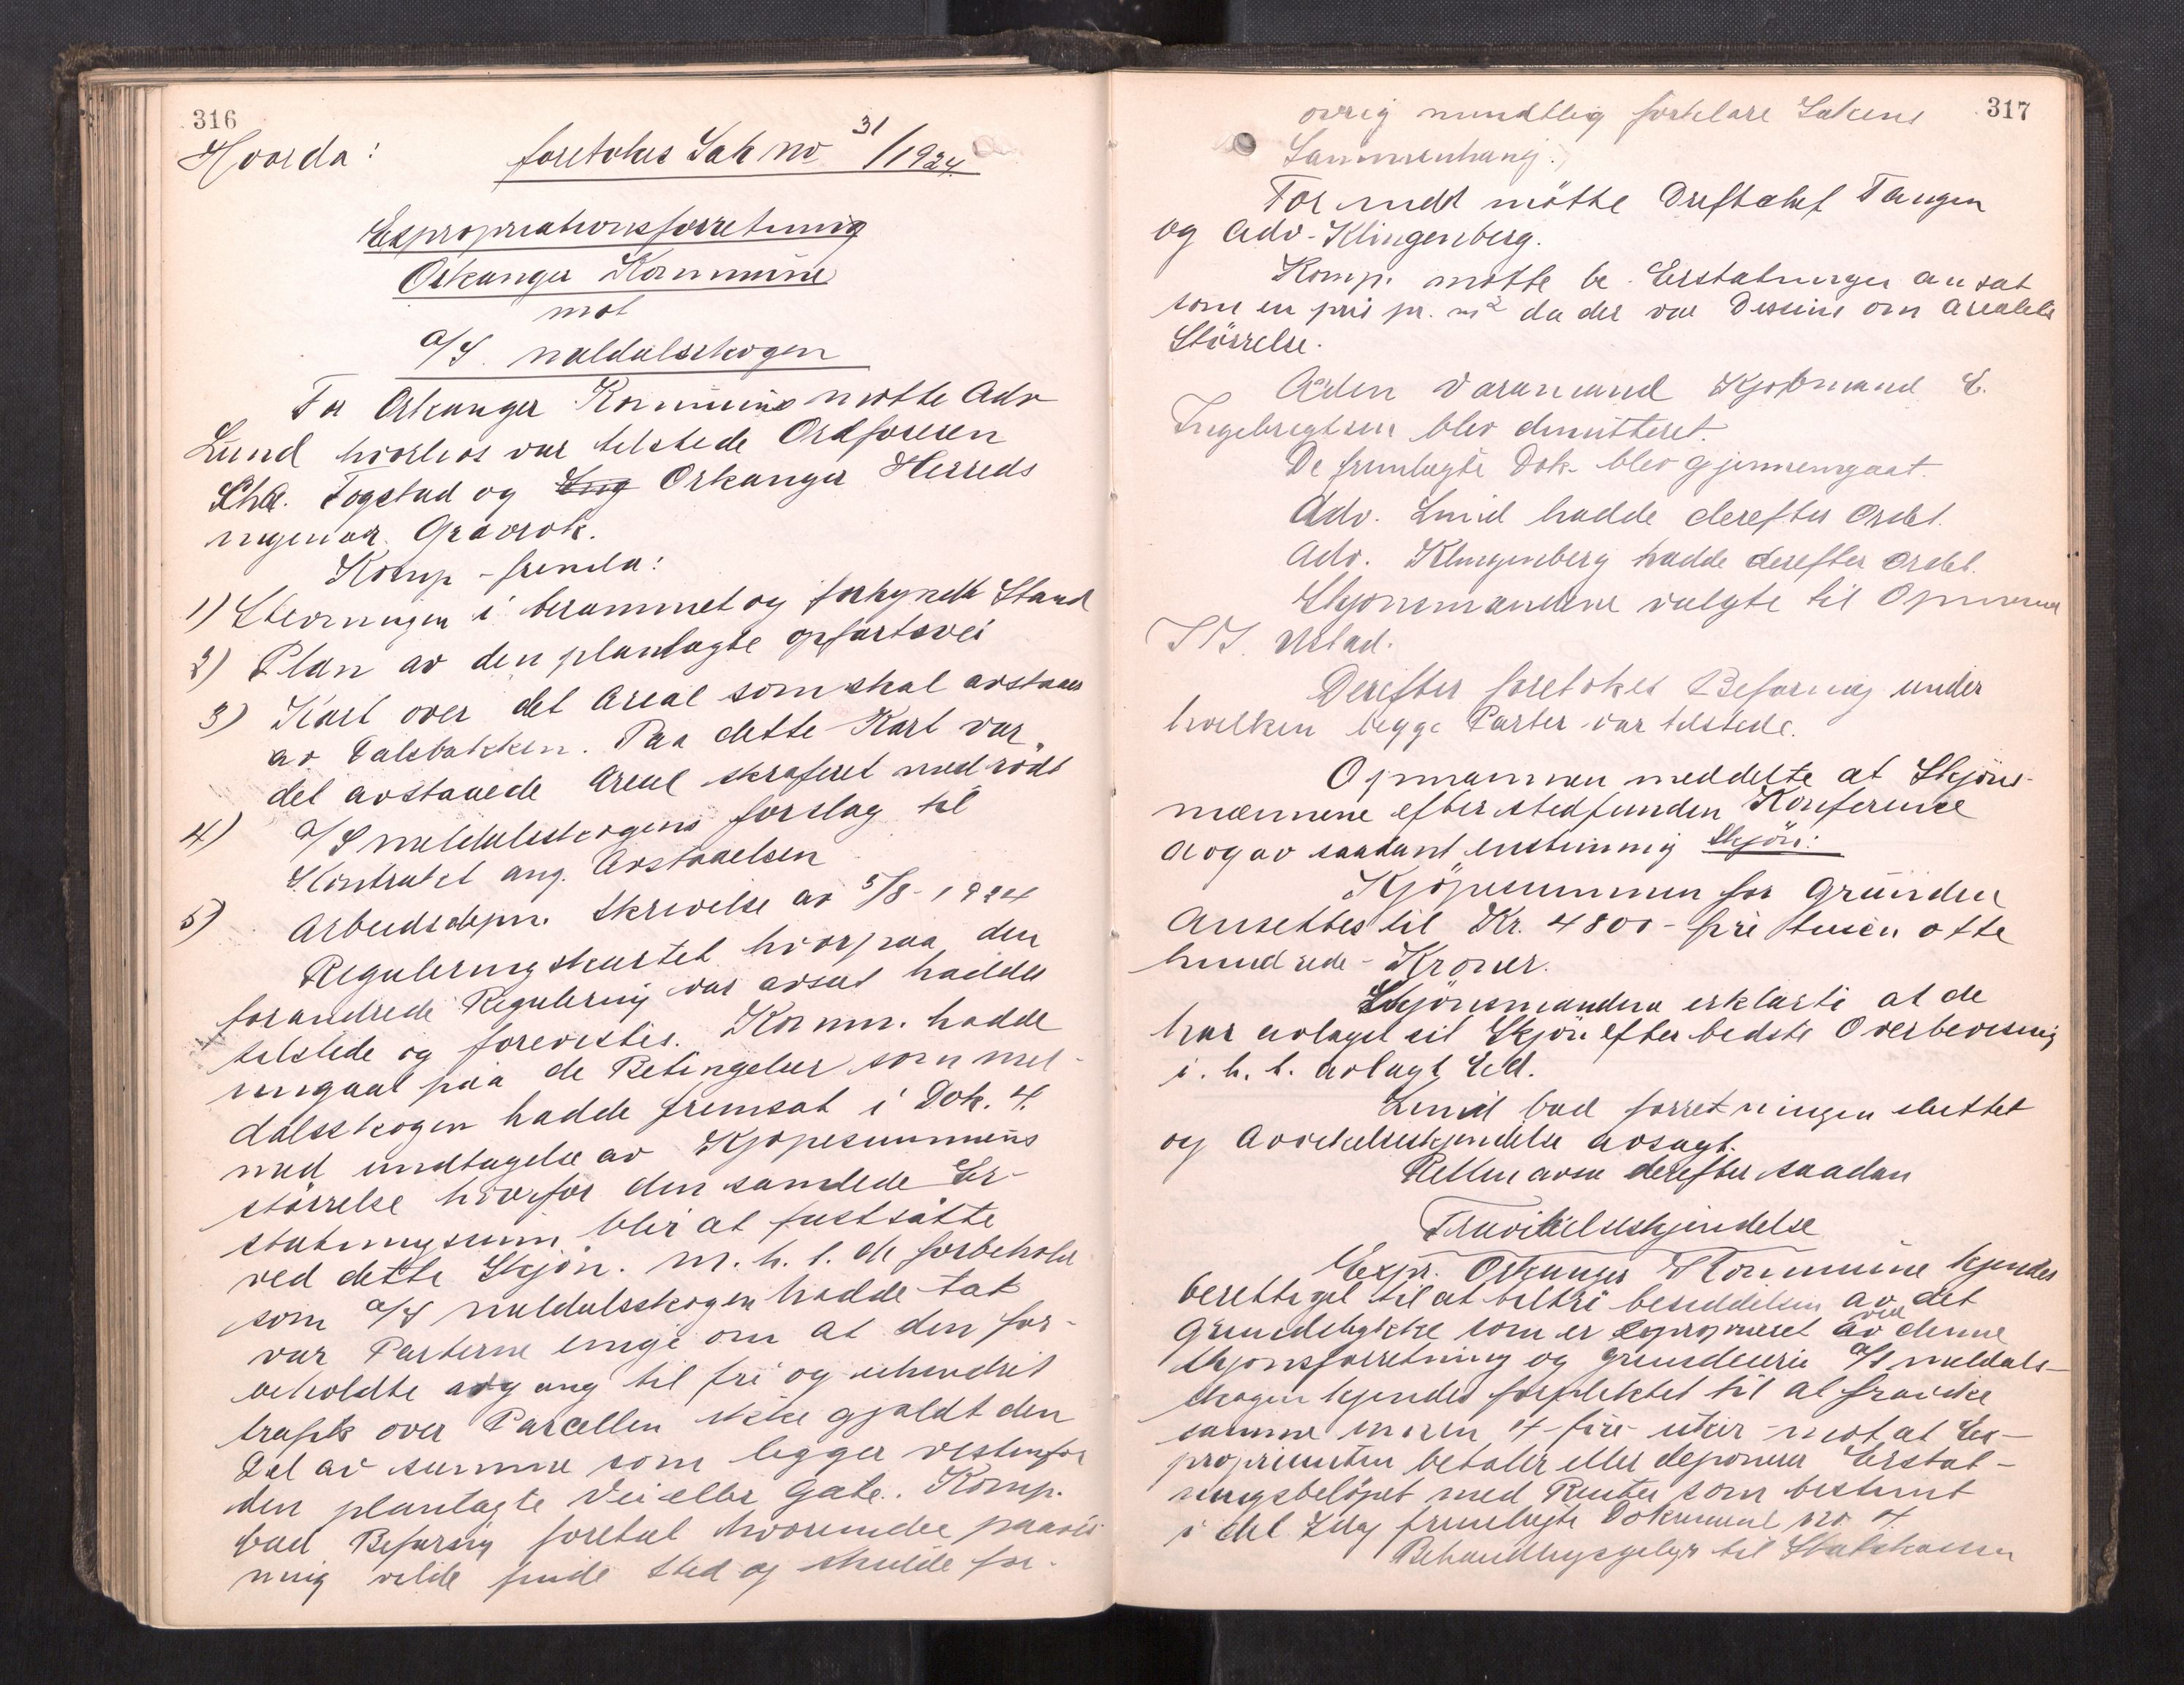 316
Hvorda:
foretokes Sak no 31/1924.
Expropriationsforretning
Orkanger Kommune
mot
A/S. Meldalsskogen
For Orkanger Kommune møtte Adv
Lund hvorhos var tilstede Ordføreren
Chr. Togstad og Ing Orkanger Herreds
ingeniør Gravrok.
Komp - fremla:
1) Stevningen i berammet og forkyndt Stand
2) Plan av den planlagte opfartsvei
3) Kart over det Areal som skal avstaaes
av Dalsbakken. Paa dette Kart var
det avstaaede Areal skraferet med rødt
4) A/S Meldalsskogens forslag til
Kontrakt ang. Avstaaelsen
5) Arbeidsdepm. Skrivelse av 5/8-1924
Reguleringskartet hvorpaa den
forandrede Regulering var avsat hadde
tilstede og forevistes. Komm. hadde
inngaat paa de Betingelser som Mel-
dalsskogen hadde fremsat i Dok. 4.
med undtagelse av Kjøpesummens
størrelse hvorfor den samlede Er-
statningssum blir at fastsätte
ved dette Skjøn. M. h. t. de forbehold
som A/S Meldalsskogen hadde tat
var Parterne enige om at den for-
beholdte adgang til fri og uhindret
trafik over Parcellen ikke gjaldt den
Del av samme som ligger vestenfor
den planlagte Vei eller Gate. Komp.
bad Befaring foretat hvorunder paavis
ning vilde finde sted og skulde for-
317
øvrig mundtlig forklare Sakens
Sammenhang.
For indst møtte Driftschef Tangen
og Adv. Klingenberg.
Komp. møtte be Erstatningen ansat
som en pris pr. m2 da der var Dissens om Arealets
Størrelse.
Varamand Kjøbmand E.
Ingebregtsen blev dimitteret.
De fremlagte Dok. blev gjennemgaat.
Adv. Lund hadde derefter Ordet.
Adv. Klingenberg hadde derefter Ordet.
Skjønsmændene valgte til Opmand
Ustad.
Derefter foretokes Befaring under
hvilken begge Parter var tilstede.
Opmannen meddelte at Skjøns-
mennene efter stedfunden Konference
avgav saadant enstemmig Skjøn:
Kjøpesummen for Grunden
Ansettes til Kr. 4800 - fire tusen otte
hundrede - Kroner.
Skjønsmændene erklærte at de
har avlagt sit Skjøn efter bedste Overbevisning
i. h. t. avlagt Ed.
Lund bad forretningen sluttet
og Avvikelseskjendelse avsagt.
Retten avsa derefter saadan
Fravikelseskjendelse
Expr. Orkanger Kommune kjendes
berettiget til at tiltræ besiddelsen av det
Grundstykke som er expropieret av ved denne
Skjønsforretning og grundeieren A/S Meldals-
skogen kjendes forpliktet til at fravike
samme innen 4 - fire - uker - mot at Ex-
proprianten betaler eller deponerer Erstat-
ningsbeløpet med Renter som bestemt
i det Idag fremlagte Dokument nr. 4.
Behandlingsgebyr til Statskassen